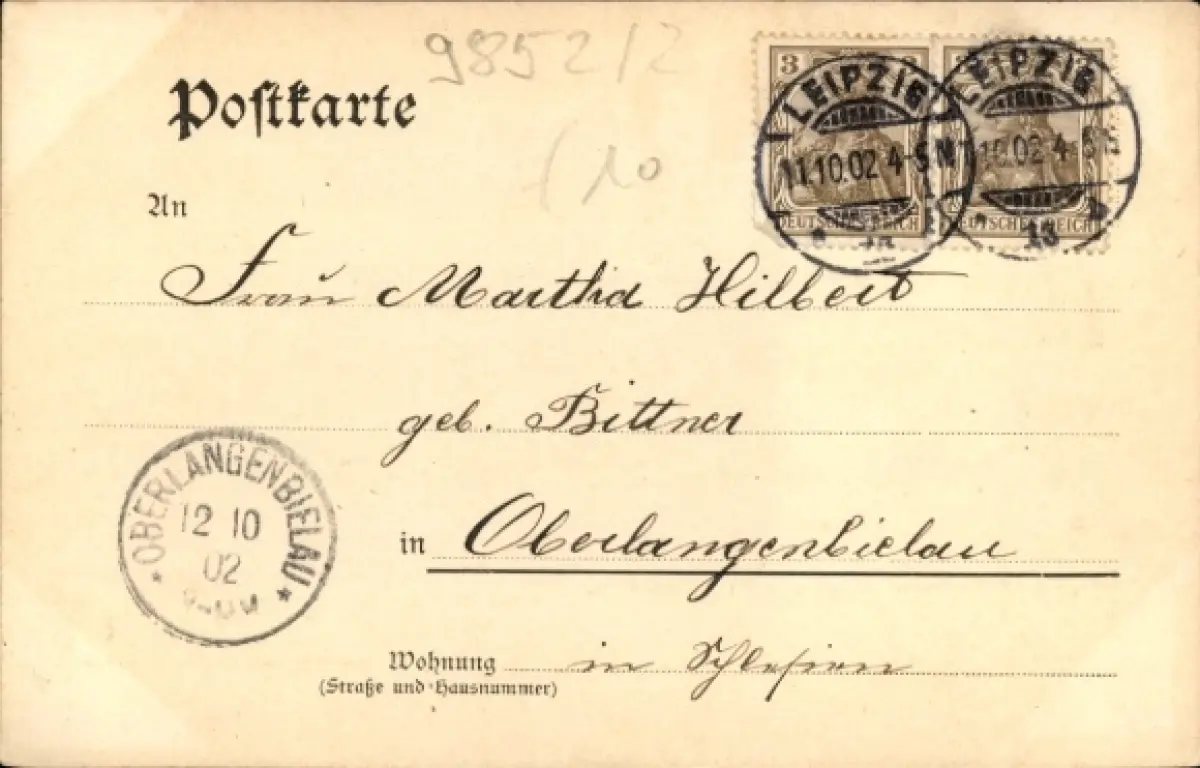 9852/2
Postkarte
(10
3
LEIPZIG
11.10.02 4-5 N
DEUTSCHES REICH
LEIPZIG
11.10.02 4-5 N
13
DEUTSCHES REICH
An
Frau Martha Hilbert
geb. Bittner
OBERLANGENBIELAU
12 10
02
in Oberlangenbielau
Wohnung in Schlesien
(Straße und Hausnummer)